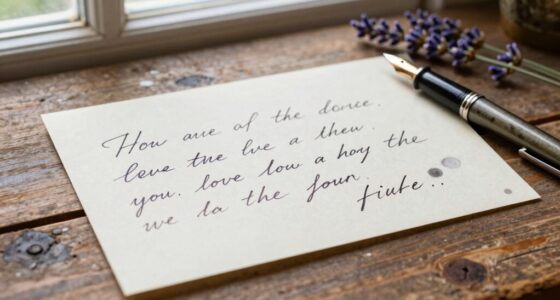 How are of the donce.
love the lve a then.
you. love low a hoy the
we la the foun.
fiute..